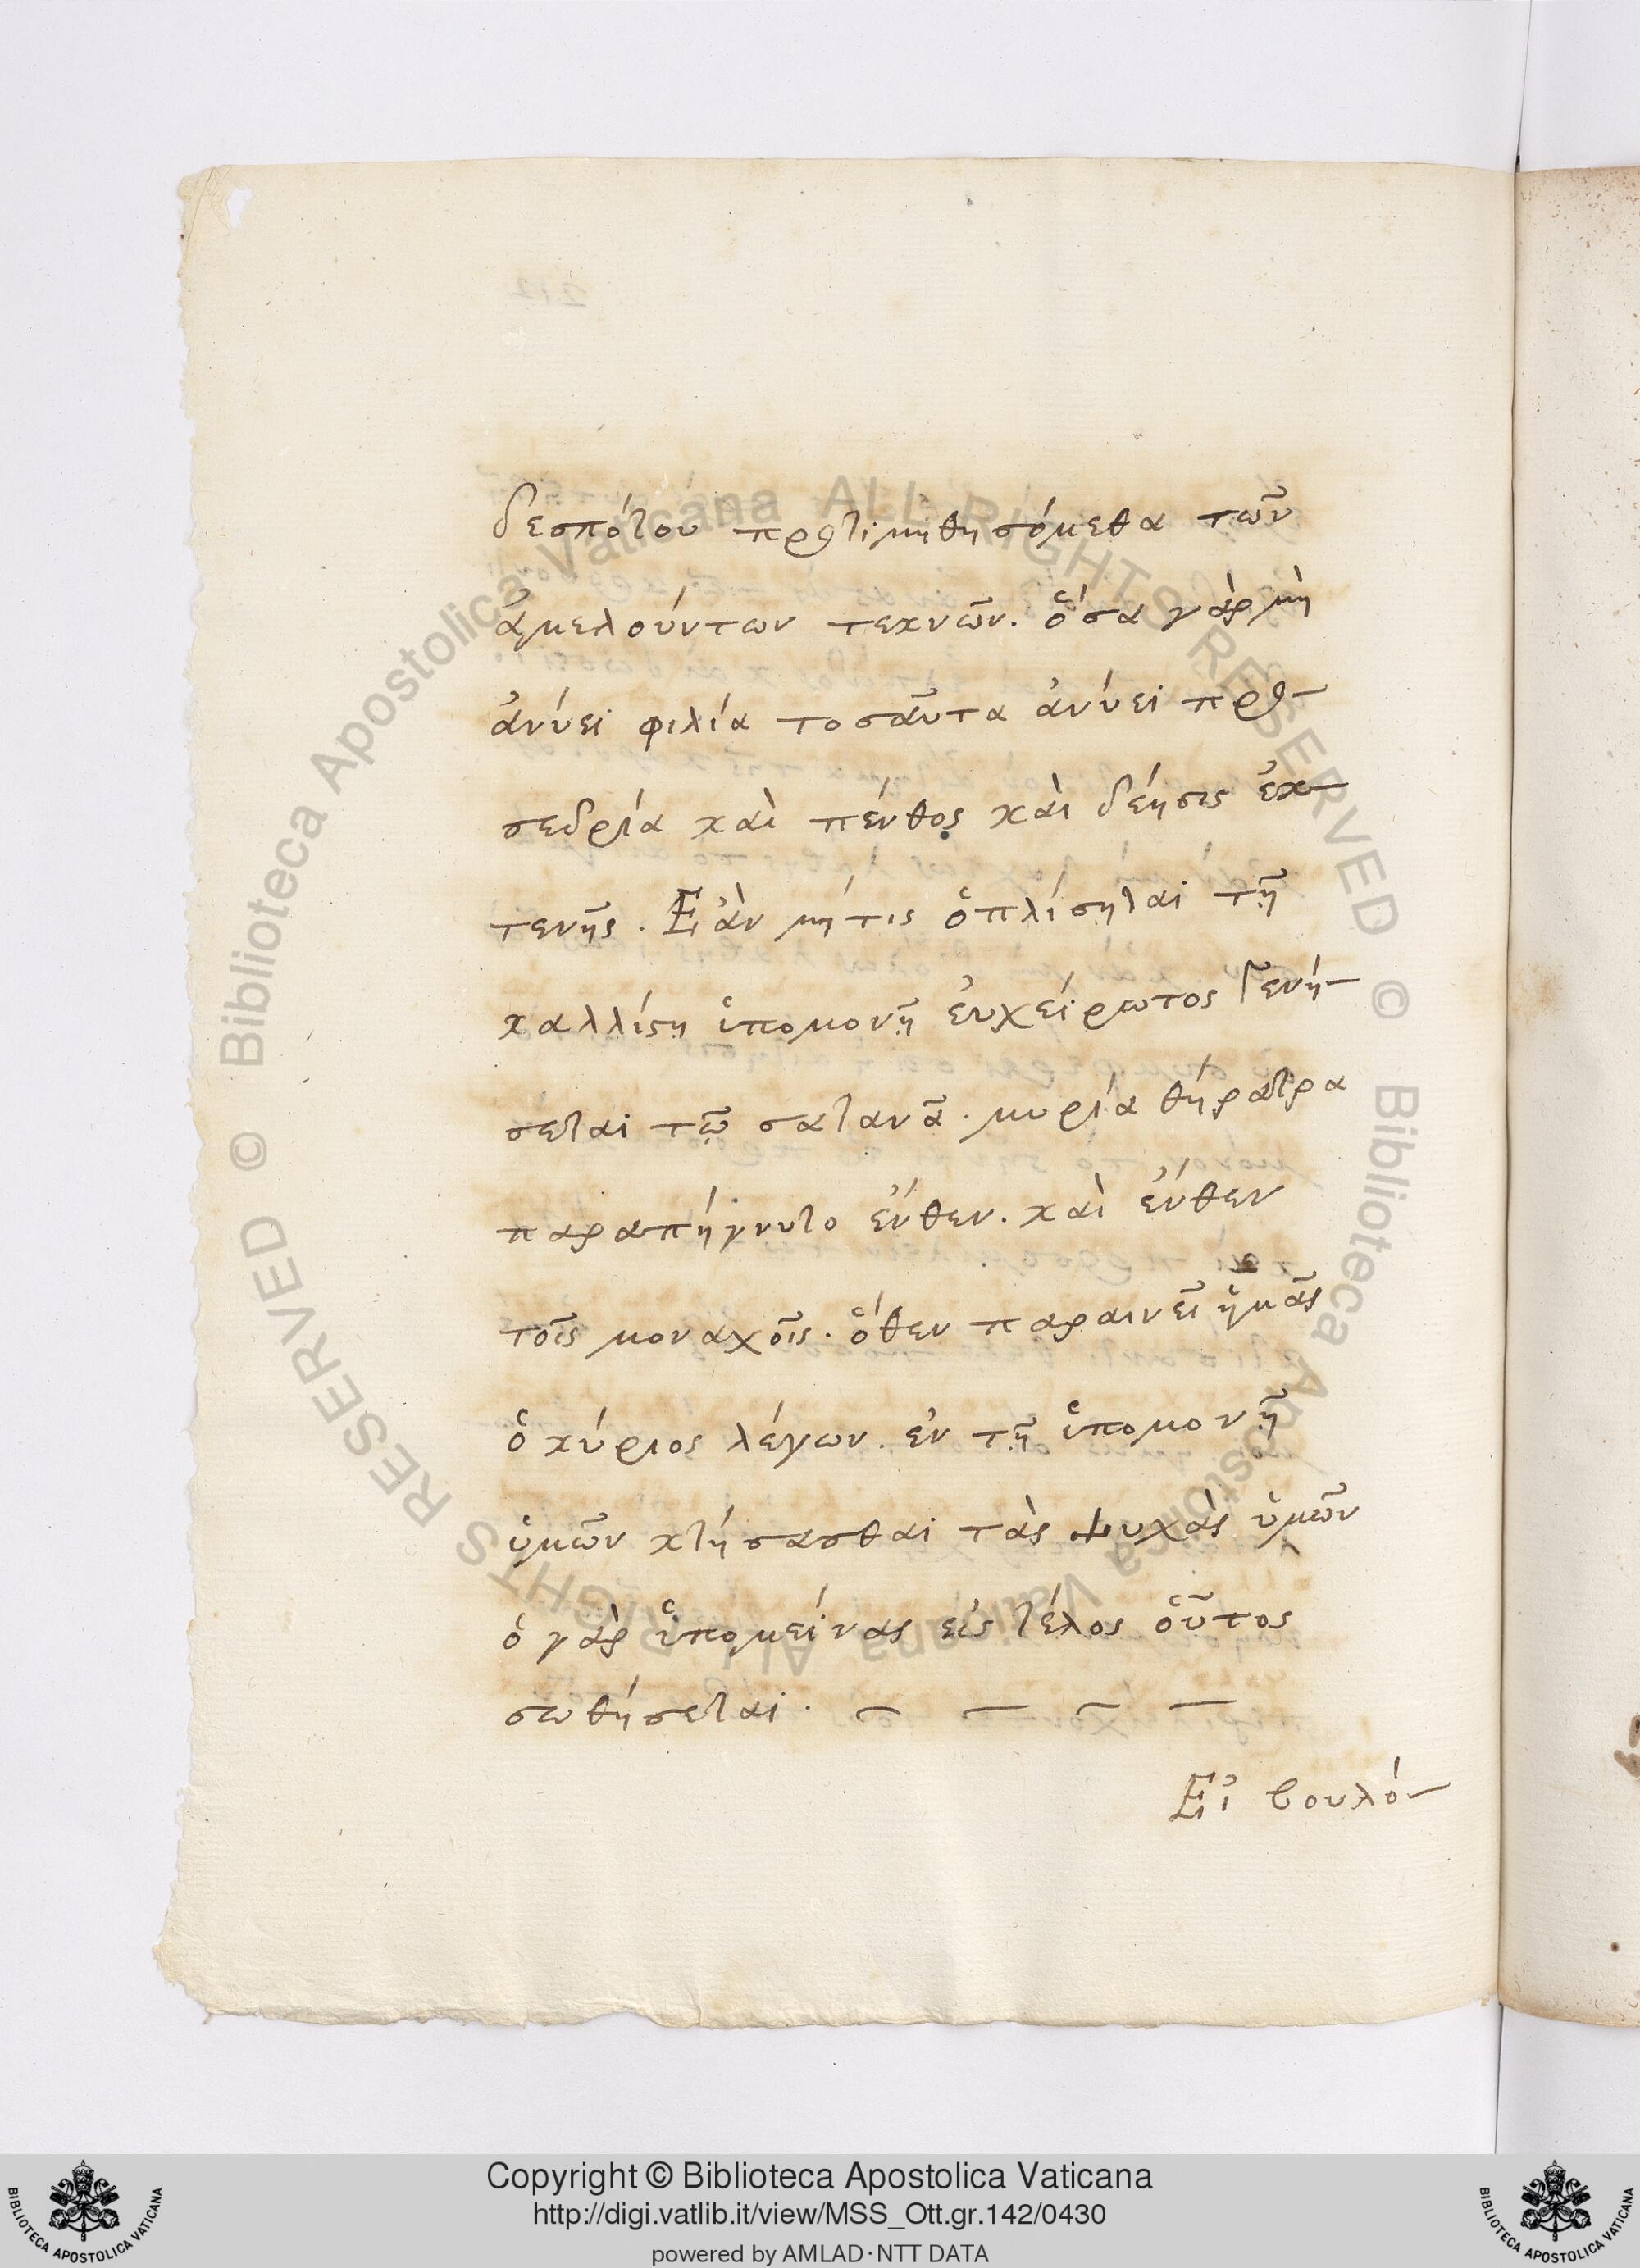 δεσπότου προτιμηθησόμεθα τῶν
ἀμελούντων τεχνῶν. ὅσα γὰρ μὴ
ἀνύει φιλία τοσαῦτα ἀνύει προ-
σεδρία καὶ πένθος καὶ δέησις ἐκ-
τενῆς. Ἐὰν μή τις ὁπλίσηται τῇ
καλλίστῃ ὑπομονῇ ἐυχείρωτος γενή-
σεται τῷ σατανᾶ. μυρία θήρατρα
παραπήγνυτο ἔνθεν. καὶ ἔνθεν
τοῖς μοναχοῖς. ὅθεν παραινεῖ ἡμᾶς
ὁ κύριος λέγων. ἐν τῇ ὑπομονῇ
ὑμῶν κτήσασθαι τὰς ψυχὰς ὑμῶν
ὁ γὰρ ὑπομείνας εἰς τέλος οὗτος
σωθήσεται.
Εἰ βουλό-
Copyright © Biblioteca Apostolica Vaticana
http://digi.vatlib.it/view/MSS_Ott.gr.142/0430
powered by AMLAD·NTT DATA
BIBLIOTECA APOSTOLICA VATICANA
BIBLIOTECA APOSTOLICA VATICANA
© Biblioteca Apostolica Vaticana ALL RIGHTS RESERVED
© Biblioteca Apostolica Vaticana ALL RIGHTS RESERVED